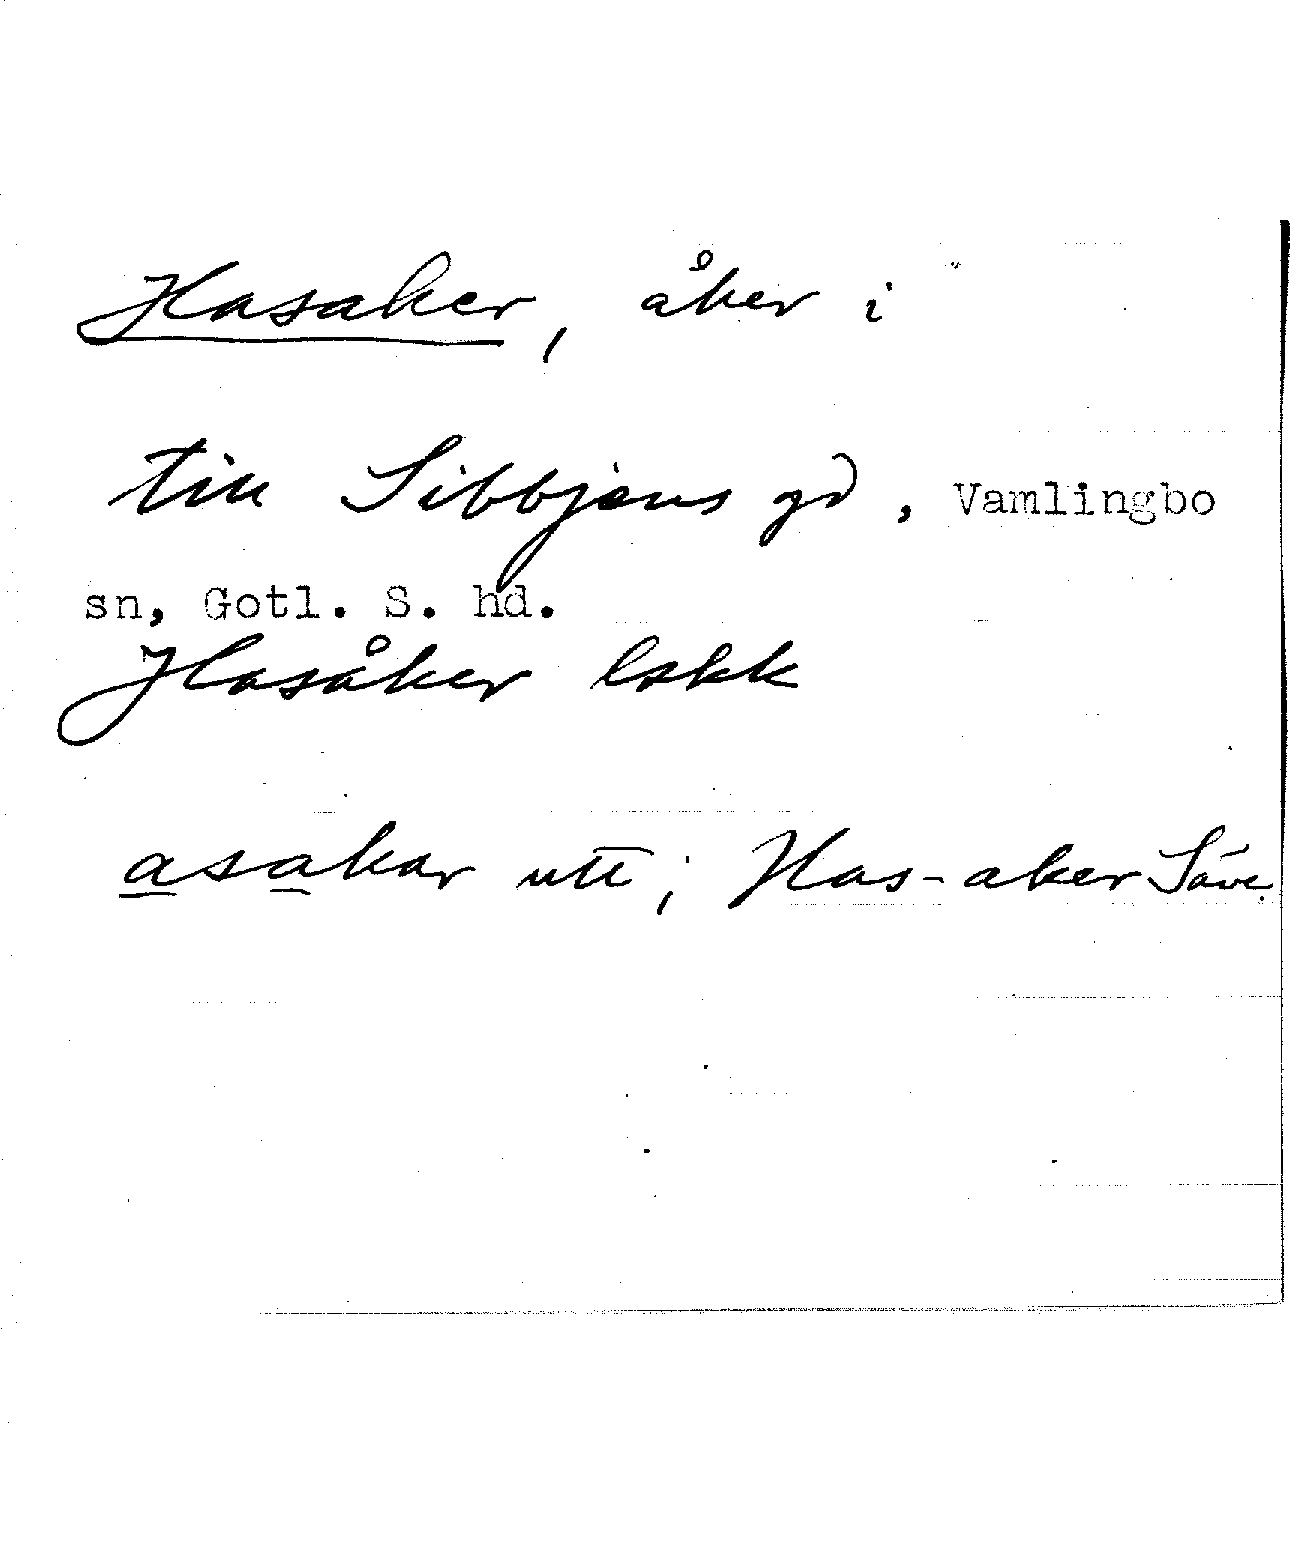 Hasaker, åker i
till Sibbjens gd, Vamlingbo
sn, Gotl. S. hd.
Hasåker lskk
asakar utt; Has-aker Säve.